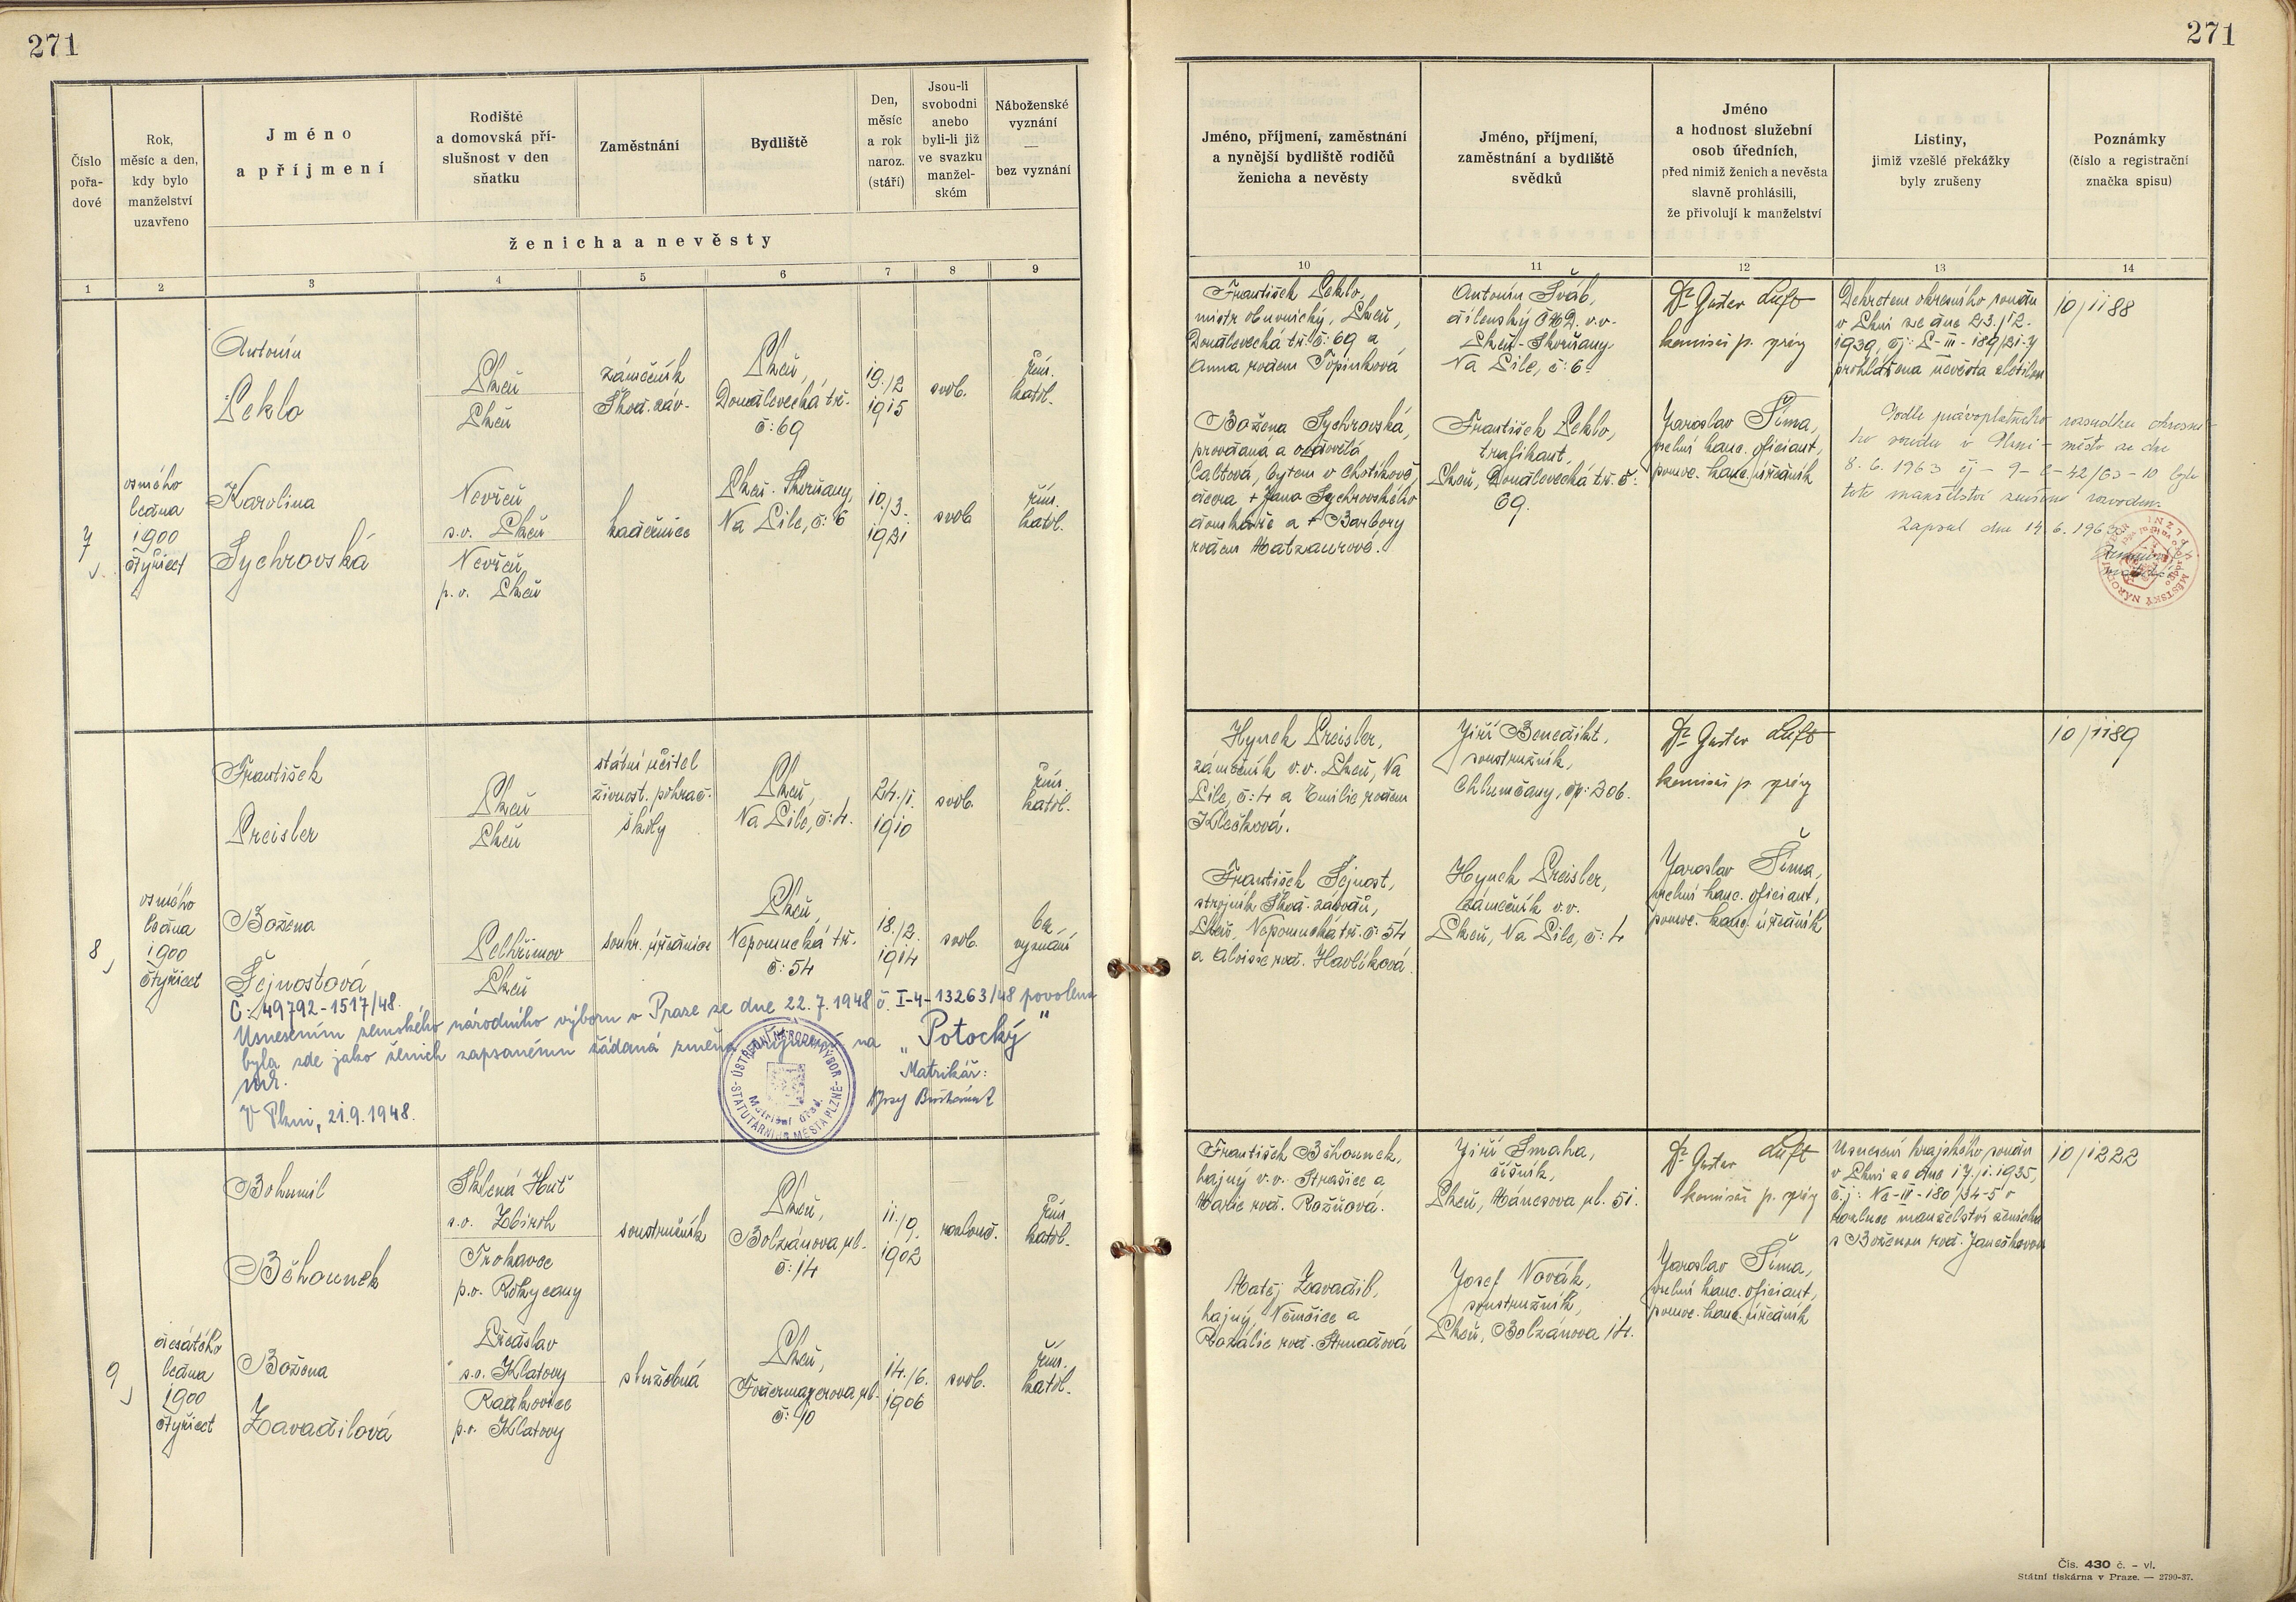 271
271
Číslo
pořa-
dové
Rok,
měsíc a den,
kdy bylo
manželství
uzavřeno
Jméno
a příjmení
Rodiště
a domovská pří-
slušnost v den
sňatku
Zaměstnání
Bydliště
Den,
měsíc
a rok
naroz.
(stáří)
Jsou-li
svobodni
anebo
byli-li již
ve svazku
manžel-
ském
Náboženské
vyznání
—
bez vyznání
ženicha a nevěsty
Jméno, příjmení, zaměstnání
a nynější bydliště rodičů
ženicha a nevěsty
Jméno, příjmení,
zaměstnání a bydliště
svědků
Jméno
a hodnost služební
osob úředních,
před nimiž ženich a nevěsta
slavně prohlásili,
že přivolují k manželství
Listiny,
jimiž vzešlé překážky
byly zrušeny
Poznámky
(číslo a registrační
značka spisu)
1 2 3 4 5 6 7 8 9 10 11 12 13 14
7
osmého
ledna
1900
čtyřicet
Antonín
Peklo
Plzeň
Plzeň
zámečník
Škod. záv.
Plzeň,
Doudlevecká tř.
č: 69
19./2
1915
svob.
řím.
katol.
Karolina
Sychrovská
Nevřeň
s.o. Plzeň
Nevřeň
p.o. Plzeň
kadeřnice
Plzeň-Skvrňany,
Na Pile, č: 6
10./3.
1921
svob
řím.
katol.
František Peklo,
mistr obuvnický, Plzeň,
Doudlevecká tř. č: 69 a
Anna rodem Topinková
Božena Sychrovská,
provdaná a ovdovělá
Caltová, bytem v Chotíkově,
dcera + Jana Sychrovského
domkáře a + Barbory
rodem Matzaurové.
Antonín Šváb,
dílenský ČMD. v.v.
Plzeň-Skvrňany
Na Pile, č: 6.
František Peklo,
trafikant,
Plzeň, Doudlevecká tř. č:
69.
Dr Gustav Luft
komisař p. správy
Jaroslav Šíma,
zvelmi kanc. oficiant,
pomoc. kanc. úředník
Dekretem okresního soudu
v Plzni ze dne 23./12.
1939, čj: P-III-189/21-7
prohlášena nevěsta zletilou
Podle právoplatného rozsudku okresní-
ho soudu v Plzni - město ze dne
8. 6. 1963 čj - 9-C-42/63-10 bylo
toto manželství zrušeno rozvodem.
Zapsal dne 14. 6. 1963
MĚSTSKÝ NÁRODNÍ
10/1188
8
osmého
ledna
1900
čtyřicet
František
Preisler
Plzeň
Plzeň
státní učitel
živnost. pokrač.
školy
Plzeň,
Na Pile, č: 4.
24./1.
1910
svob.
řím.
katol.
Božena
Šejnostová
Pelhřimov
Plzeň
soukr. úřednice
Plzeň,
Nepomucká tř.
č: 54
18./2.
1914
svob.
bez
vyznání
Č: 49792-1517/48.
Usnesením zemského národního výboru v Praze ze dne 22.7.1948 č. I-4-13263/48 povolena
byla zde jako ženich zapsanému žádaná změna příjmení na „Potocký“
V Plzni, 21.9.1948.
Matrikář:
ÚSTŘEDNÍ NÁRODNÍ VÝBOR
STATUTÁRNÍHO MĚSTA PLZNĚ
Matriční úřad
Hynek Preisler,
zámečník v.v. Plzeň, Na
Pile, č: 4 a Emilie rodem
Klečková.
František Šejnost,
strojník Škod. závodů,
Plzeň, Nepomucká tř. č: 54
a Aloisie rod. Havlíková.
Jiří Benedikt,
soustružník,
Chlumčany, čp: 206.
Hynek Preisler,
zámečník v.v.
Plzeň, Na Pile, č: 4
Dr Gustav Luft
komisař p. správy
Jaroslav Šíma,
zvelmi kanc. oficiant,
pomoc. kanc. úředník
10/1189
9
desátého
ledna
1900
čtyřicet
Bohumil
Běhounek
Sklená Huť
s.o. Zbiroh
Trokavec
p.o. Rokycany
soustružník
Plzeň,
Bolzánova ul.
č: 14
11./9.
1902
rozlouč.
řím.
katol.
Božena
Zavadilová
Předslav
s.o. Klatovy
Radkovice
p.o. Klatovy
služebná
Plzeň,
Fodermayerova ul.
č: 10
14./6.
1906
svob.
řím.
katol.
František Běhounek,
hajný v.v. Strašice a
Marie rod. Rožňová.
Matěj Zavadil,
hajný, Němčice a
Rozálie rod. Strnadová
Jiří Smaha,
číšník,
Plzeň, Mánesova ul. 51.
Josef Novák,
soustružník,
Plzeň, Bolzánova 14.
Dr Gustav Luft
komisař p. správy
Jaroslav Šíma,
zvelmi kanc. oficiant,
pomoc. kanc. úředník
Usnesení krajského soudu
v Plzni ze dne 17./1.1935,
č.j: Nc-II-180/34-5 o
rozluce manželství ženicha
s Boženou rod. Janečkovou
10/1222
Čís. 430 č. – vl.
Státní tiskárna v Praze. — 2790-37.